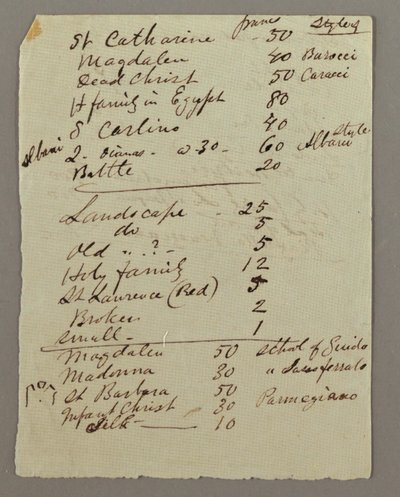 francs Style of
St Catharine - 50
Magdalen 40 Barocci
Dead Christ 50 Caracci
H family in Egypt 80
S Carlino 40
Albani 2 - Dianas - a - 30 - 60 Albani Style
Battle 20
Landscape - 25
do 5
Old " ? - 5
Holy family 12
St Lawrence (Red) 5
Broken 2
small - 1
Magdalen 50 school of Guido
Madonna 30 " Sassoferrato
St Barbara 50
Infant Christ 30 Parmegiano
Silk - 10